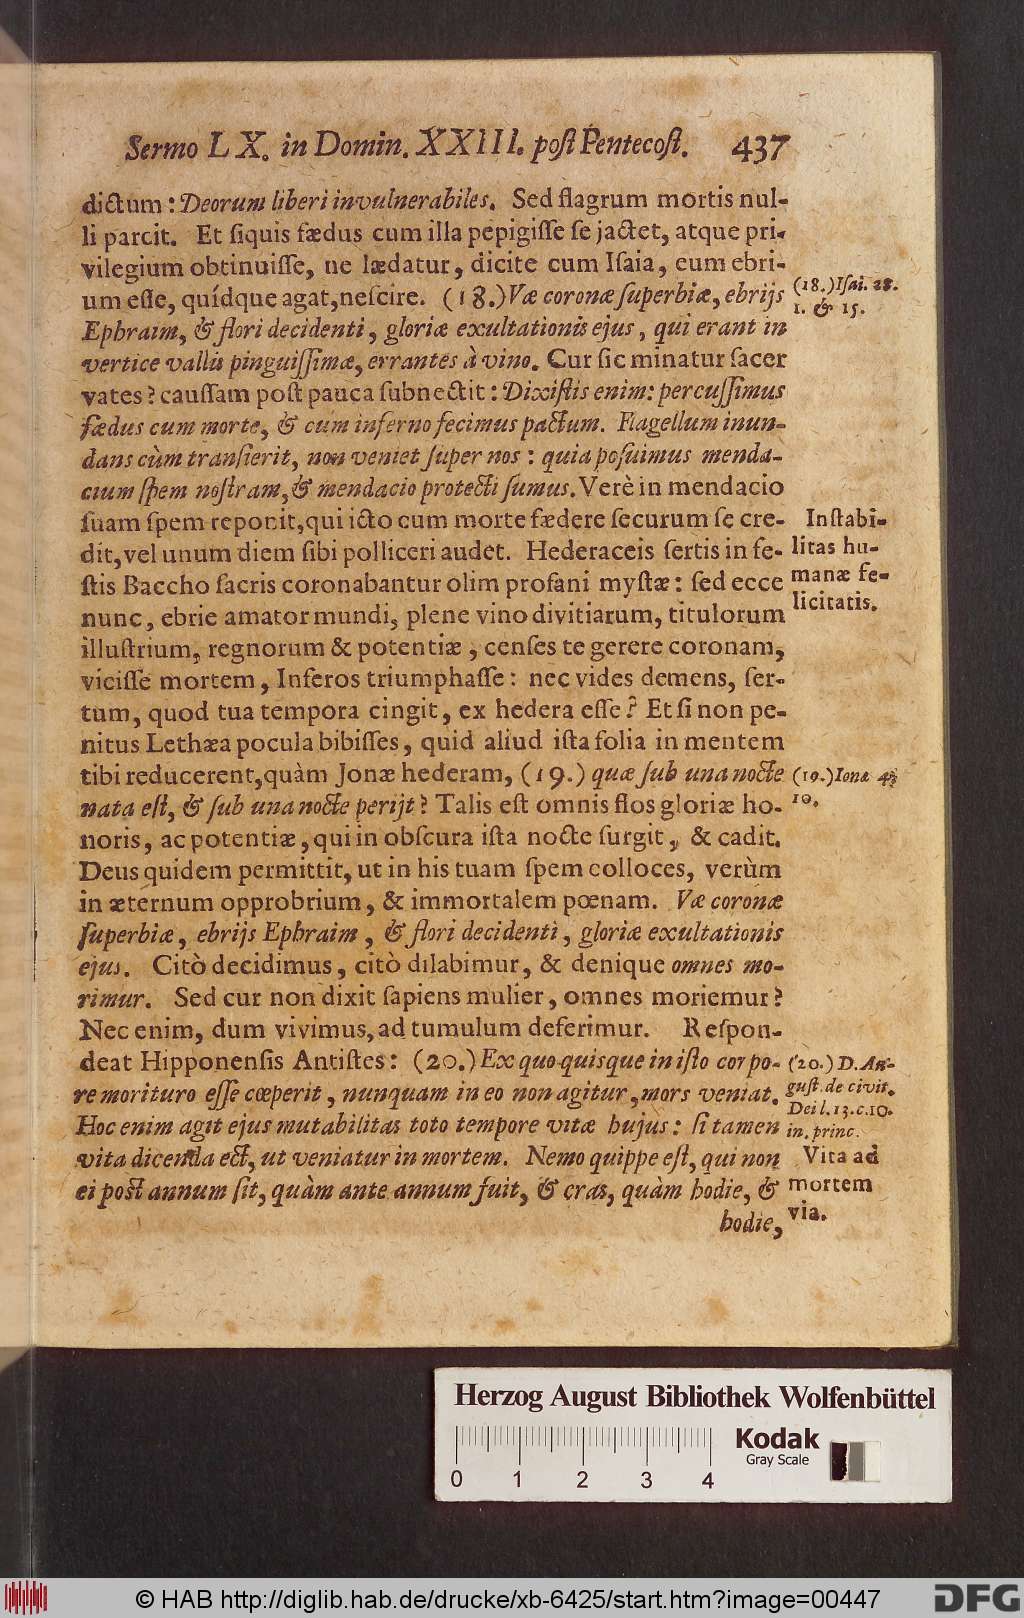 Sermo LX. in Domin. XXIII. poſt Pentecoſt. 437
dictum: Deorum liberi invulnerabiles. Sed flagrum mortis nul-
li parcit. Et ſiquis fædus cum illa pepigiſſe ſe jactet, atque pri-
vilegium obtinuiſſe, ne lædatur, dicite cum Iſaia, eum ebri-
um eſſe, quídque agat, neſcire. (18.) Væ coronæ ſuperbiæ, ebrijs
Ephraim, & flori decidenti, gloriæ exultationis ejus, qui erant in
vertice vallis pinguiſſimæ, errantes à vino. Cur ſic minatur ſacer
vates? cauſſam poſt pauca ſubnectit: Dixiſtis enim: percuſſimus
fædus cum morte, & cum inferno fecimus pactum. Flagellum inun-
dans cùm tranſierit, non veniet ſuper nos: quia poſuimus menda-
cium ſpem noſtram, & mendacio protecti ſumus. Verè in mendacio
ſuam ſpem reponit, qui icto cum morte fædere ſecurum ſe cre-
dit, vel unum diem ſibi polliceri audet. Hederaceis ſertis in fe-
ſtis Baccho ſacris coronabantur olim profani myſtæ: ſed ecce
nunc, ebrie amator mundi, plene vino divitiarum, titulorum
illuſtrium, regnorum & potentiæ, cenſes te gerere coronam,
viciſſe mortem, Inferos triumphaſſe: nec vides demens, ſer-
tum, quod tua tempora cingit, ex hedera eſſe? Et ſi non pe-
nitus Lethæa pocula bibiſſes, quid aliud iſta folia in mentem
tibi reducerent, quàm Jonæ hederam, (19.) quæ ſub una nocte
nata eſt, & ſub una nocte perijt? Talis eſt omnis flos gloriæ ho-
noris, ac potentiæ, qui in obſcura iſta nocte ſurgit, & cadit.
Deus quidem permittit, ut in his tuam ſpem colloces, verùm
in æternum opprobrium, & immortalem pœnam. Væ coronæ
ſuperbiæ, ebrijs Ephraim, & flori decidenti, gloriæ exultationis
ejus. Citò decidimus, citò dilabimur, & denique omnes mo-
rimur. Sed cur non dixit ſapiens mulier, omnes moriemur?
Nec enim, dum vivimus, ad tumulum deferimur. Reſpon-
deat Hipponenſis Antiſtes: (20.) Ex quo quisque in iſto corpo-
re morituro eſſe cœperit, nunquam in eo non agitur, mors veniat.
Hoc enim agit ejus mutabilitas toto tempore vitæ hujus: ſi tamen
vita dicenda eſt, ut veniatur in mortem. Nemo quippe eſt, qui non
ei poſt annum ſit, quàm ante annum fuit, & cras, quàm hodie, &
hodie,
(18.) Iſai. 28.
1. & 15.
Inſtabi-
litas hu-
manæ fe-
licitatis.
(19.) Ionæ 4.
10.
(20.) D. Au-
guſt. de civit.
Dei l. 13. c. 10.
in princ.
Vita ad
mortem
via.
Herzog August Bibliothek Wolfenbüttel
Kodak
Gray Scale
0 1 2 3 4
© HAB http://diglib.hab.de/drucke/xb-6425/start.htm?image=00447
DFG